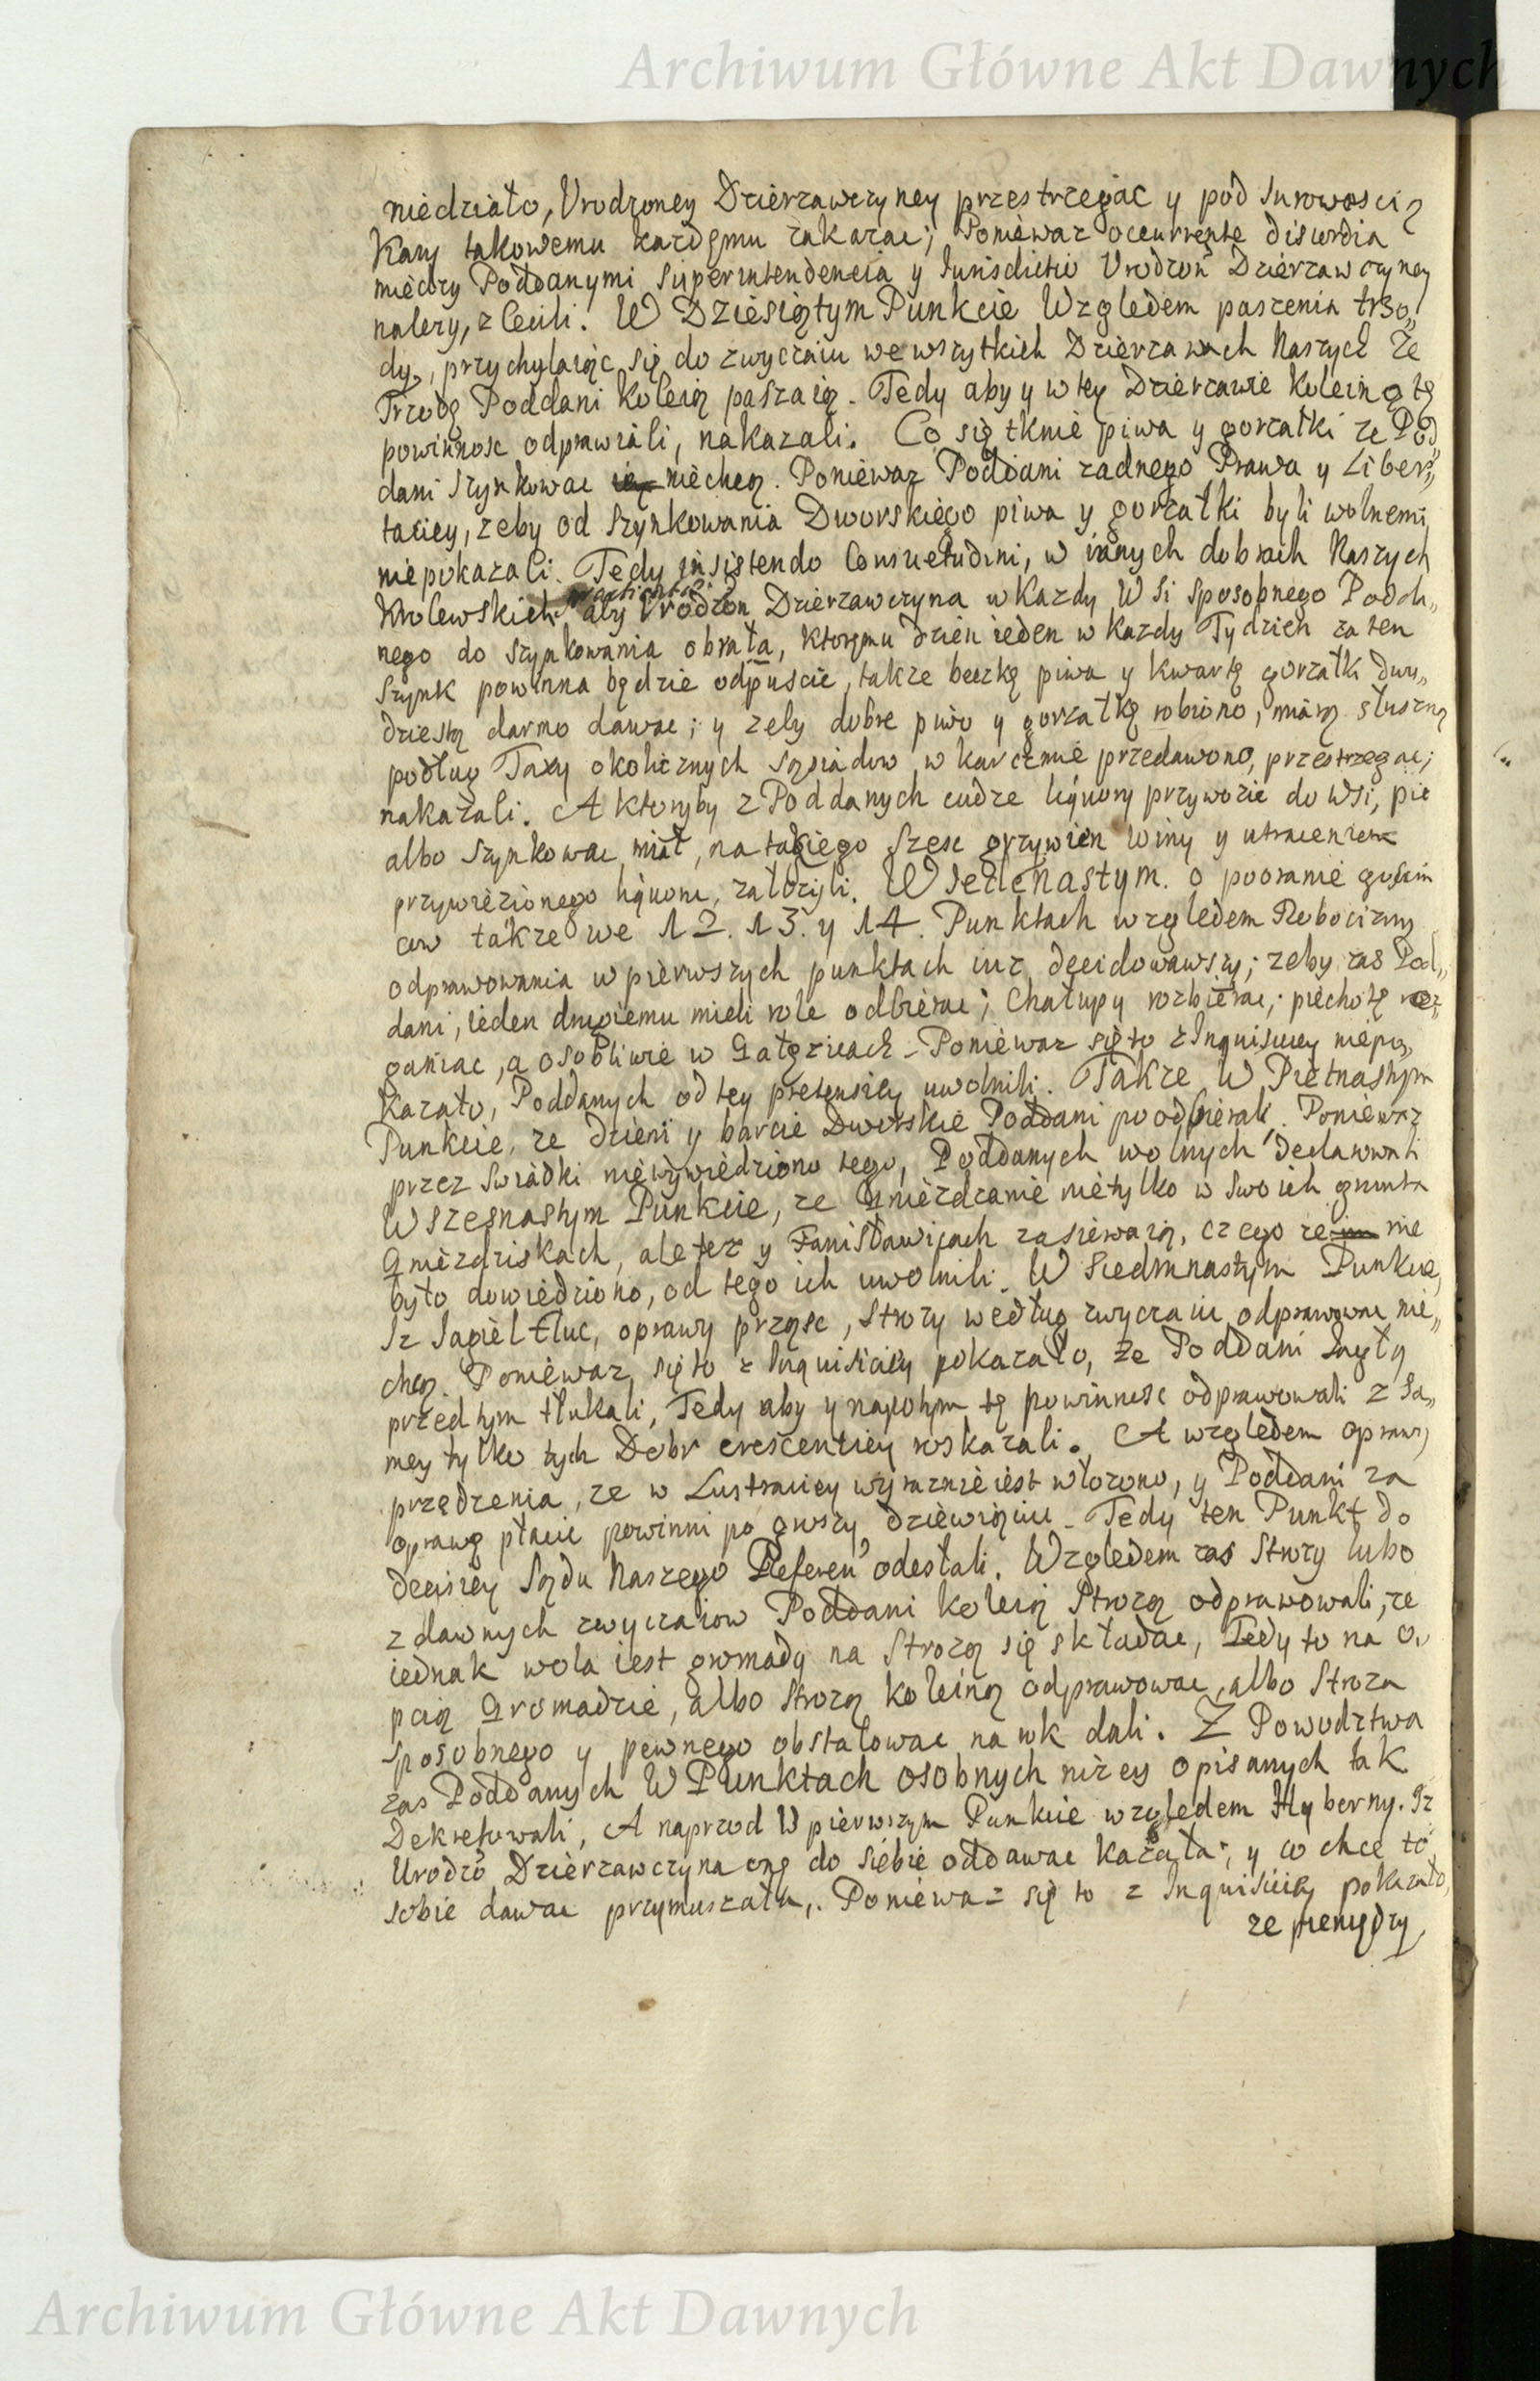 Archiwum Główne Akt Dawnych
niedziało, Urodzoney Dzierzawczyney przestrzegac y pod surowoscią
Kary takowemu kazdemu zakazac; Poniewaz occurrente discordia
między Poddanymi superintendencia y Iurisdictio Urodzoń Dzierzawczyney
nalezy, zlecili. W Dziesiątym Punkcie Względem paszenia trzo„
dy, przychylaiąc się do zwyczaiu we wszytkich Dzierzawach Naszych ze
Trzodę Poddani koleią paszaią. Tedy aby y w tey Dzierzawie koleiną tę
powinnosc odprawiali, nakazali. Co się tknie piwa y gorzałki ze Pod„
dani szynkowac niechcą. Poniewaz Poddani zadnego Prawa y Liber„
taciey, zeby od szynkowania Dworskiego piwa y gorzałki byli wolnemi,
niepokazali. Tedy insistendo Consuetudini, w innych dobrach Naszych
Krolewskich aby Urodzon Dzierzawczyna w Kazdy Wsi sposobnego Podda„
nego do szynkowania obrała, ktoremu dzien ieden w kazdy Tydzien za ten
szynk powinna będzie odpuscic, takze beczkę piwa y kwartę gorzałki dwu„
dziestą darmo dawac; y zeby dobre piwo y gorzałkę robiono, miarą słuszną
podług Taxy okolicznych sąsiadow w karczmie przedawono, przestrzegac;
nakazali. A ktoryby z Poddanych cudze liquory przywozic do wsi, pic
albo szynkowac miał, na takiego szesc grzywien winy y utraceniem
przywiezionego liquoru, załozyli. W Iedenastym. o pooranie goscin
cow takze we 12. 13. y 14. Punktach względem Robocizny
odprawowania w pierwszych punktach iuz decidowawszy; zeby zas Pod„
dani, ieden drugiemu mieli role odbierac; Chałupy rozbierac; piechotę
ganiac, a osobliwie w Gałęzicach - Poniewaz się to z Inquisiciey niepo„
kazało, Poddanych od tey pretensiey uwolnili. Takze W Pietnastym
Punkcie, ze dzieni y barcie Dworskie Poddani poodbierali. Poniewaz
przez swiadki niewywiedziono tego, Poddanych wolnych declarowali
W szesnastym Punkcie, ze Gniezdzanie nietylko w swoich gruntа
Gniezdziskach, ale tez y Fanisławicach zasiewaią, czego ze nie
było dowiedziono, od tego ich uwolnili. W Siedmnastym Punkcie,
Iz Iagieł tłuc, oprawy prząsc, strozy według zwyczaiu odprawowac nie„
chcą. Poniewaz się to z Inquisiciey pokazało, ze Poddani Iagły
przedtym tłukali, Tedy aby y napotym tę powinnosc odprawowali z sa„
mey tylko tych Dobr crescentiey roskazali. A względem oprawy
przędzenia, ze w Lustraciey wyraznie iest włozono, y Poddani za
oprawę płacic powinni po groszy dziewiąciu - Tedy ten Punkt do
decisiey Sądu Naszego Referen̕ odesłali. Względem zas strozy lubo
z dawnych zwyczaiow Poddani koleią Strozą odprawowali, ze
iednak wola iest gromady na Strozą się składac, Tedy to na o„
pcią Gromadzie, albo strozą koleiną odprawowac, albo stroza
sposobnego y pewnego obstalowac na rok dali. Z Powodztwa
zas Poddanych W Punktach osobnych nizey opisanych tak
Dekretowali, A naprzod W pierwszym Punkcie względem Hyberny. Iz
Urodzo Dzierzawczyna onę do siebie oddawac kazała; y co chce to
sobie dawac przymuszała,. Poniewaz się to z Inquisiciey pokazało,
ze pieniędzy
Archiwum Główne Akt Dawnych